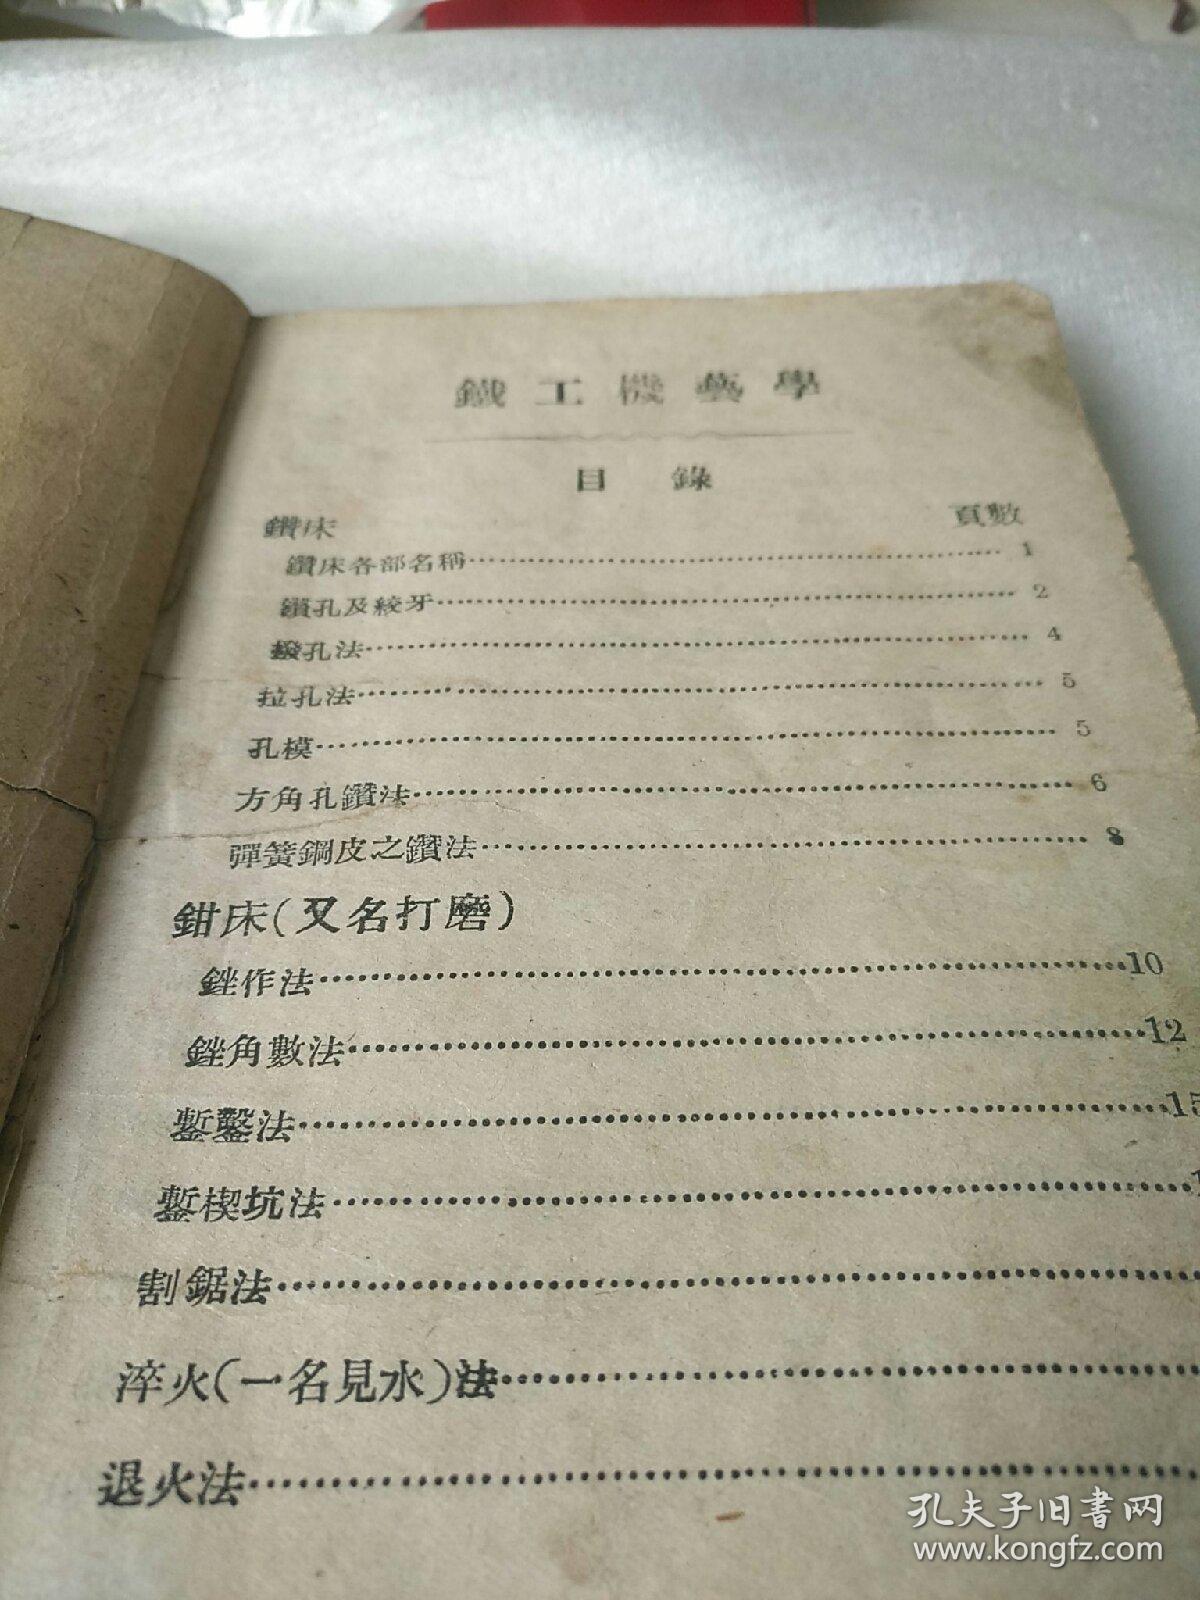 鐵工機藝學
目錄
鑽床 頁數
鑽床各部名稱 1
鑽孔及絞牙 2
撥孔法 4
拉孔法 5
孔模 5
方角孔鑽法 6
彈簧鋼皮之鑽法 8
鉗床(又名打磨)
銼作法 10
銼角數法 12
鏨鑿法 15
鏨楔坑法 1
割鋸法
淬火(一名見水)法
退火法
孔夫子旧书网
www.kongfz.com